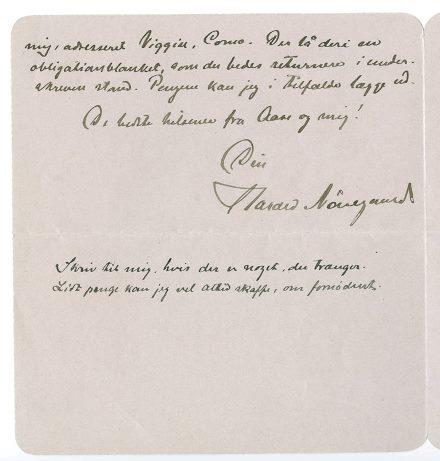 mig, adresseret Viggiù, Como. Der lå deri en
obligationsblanket, som du bedes returnere i under-
skreven stand. Pengene kan jeg i tilfælde lægge ud.
De bedste hilsener fra Aase og mig!
Din
Harald Nørregaard
Skriv til mig, hvis der er noget, du trænger.
Lidt penge kan jeg vel altid skaffe, om fornødent.